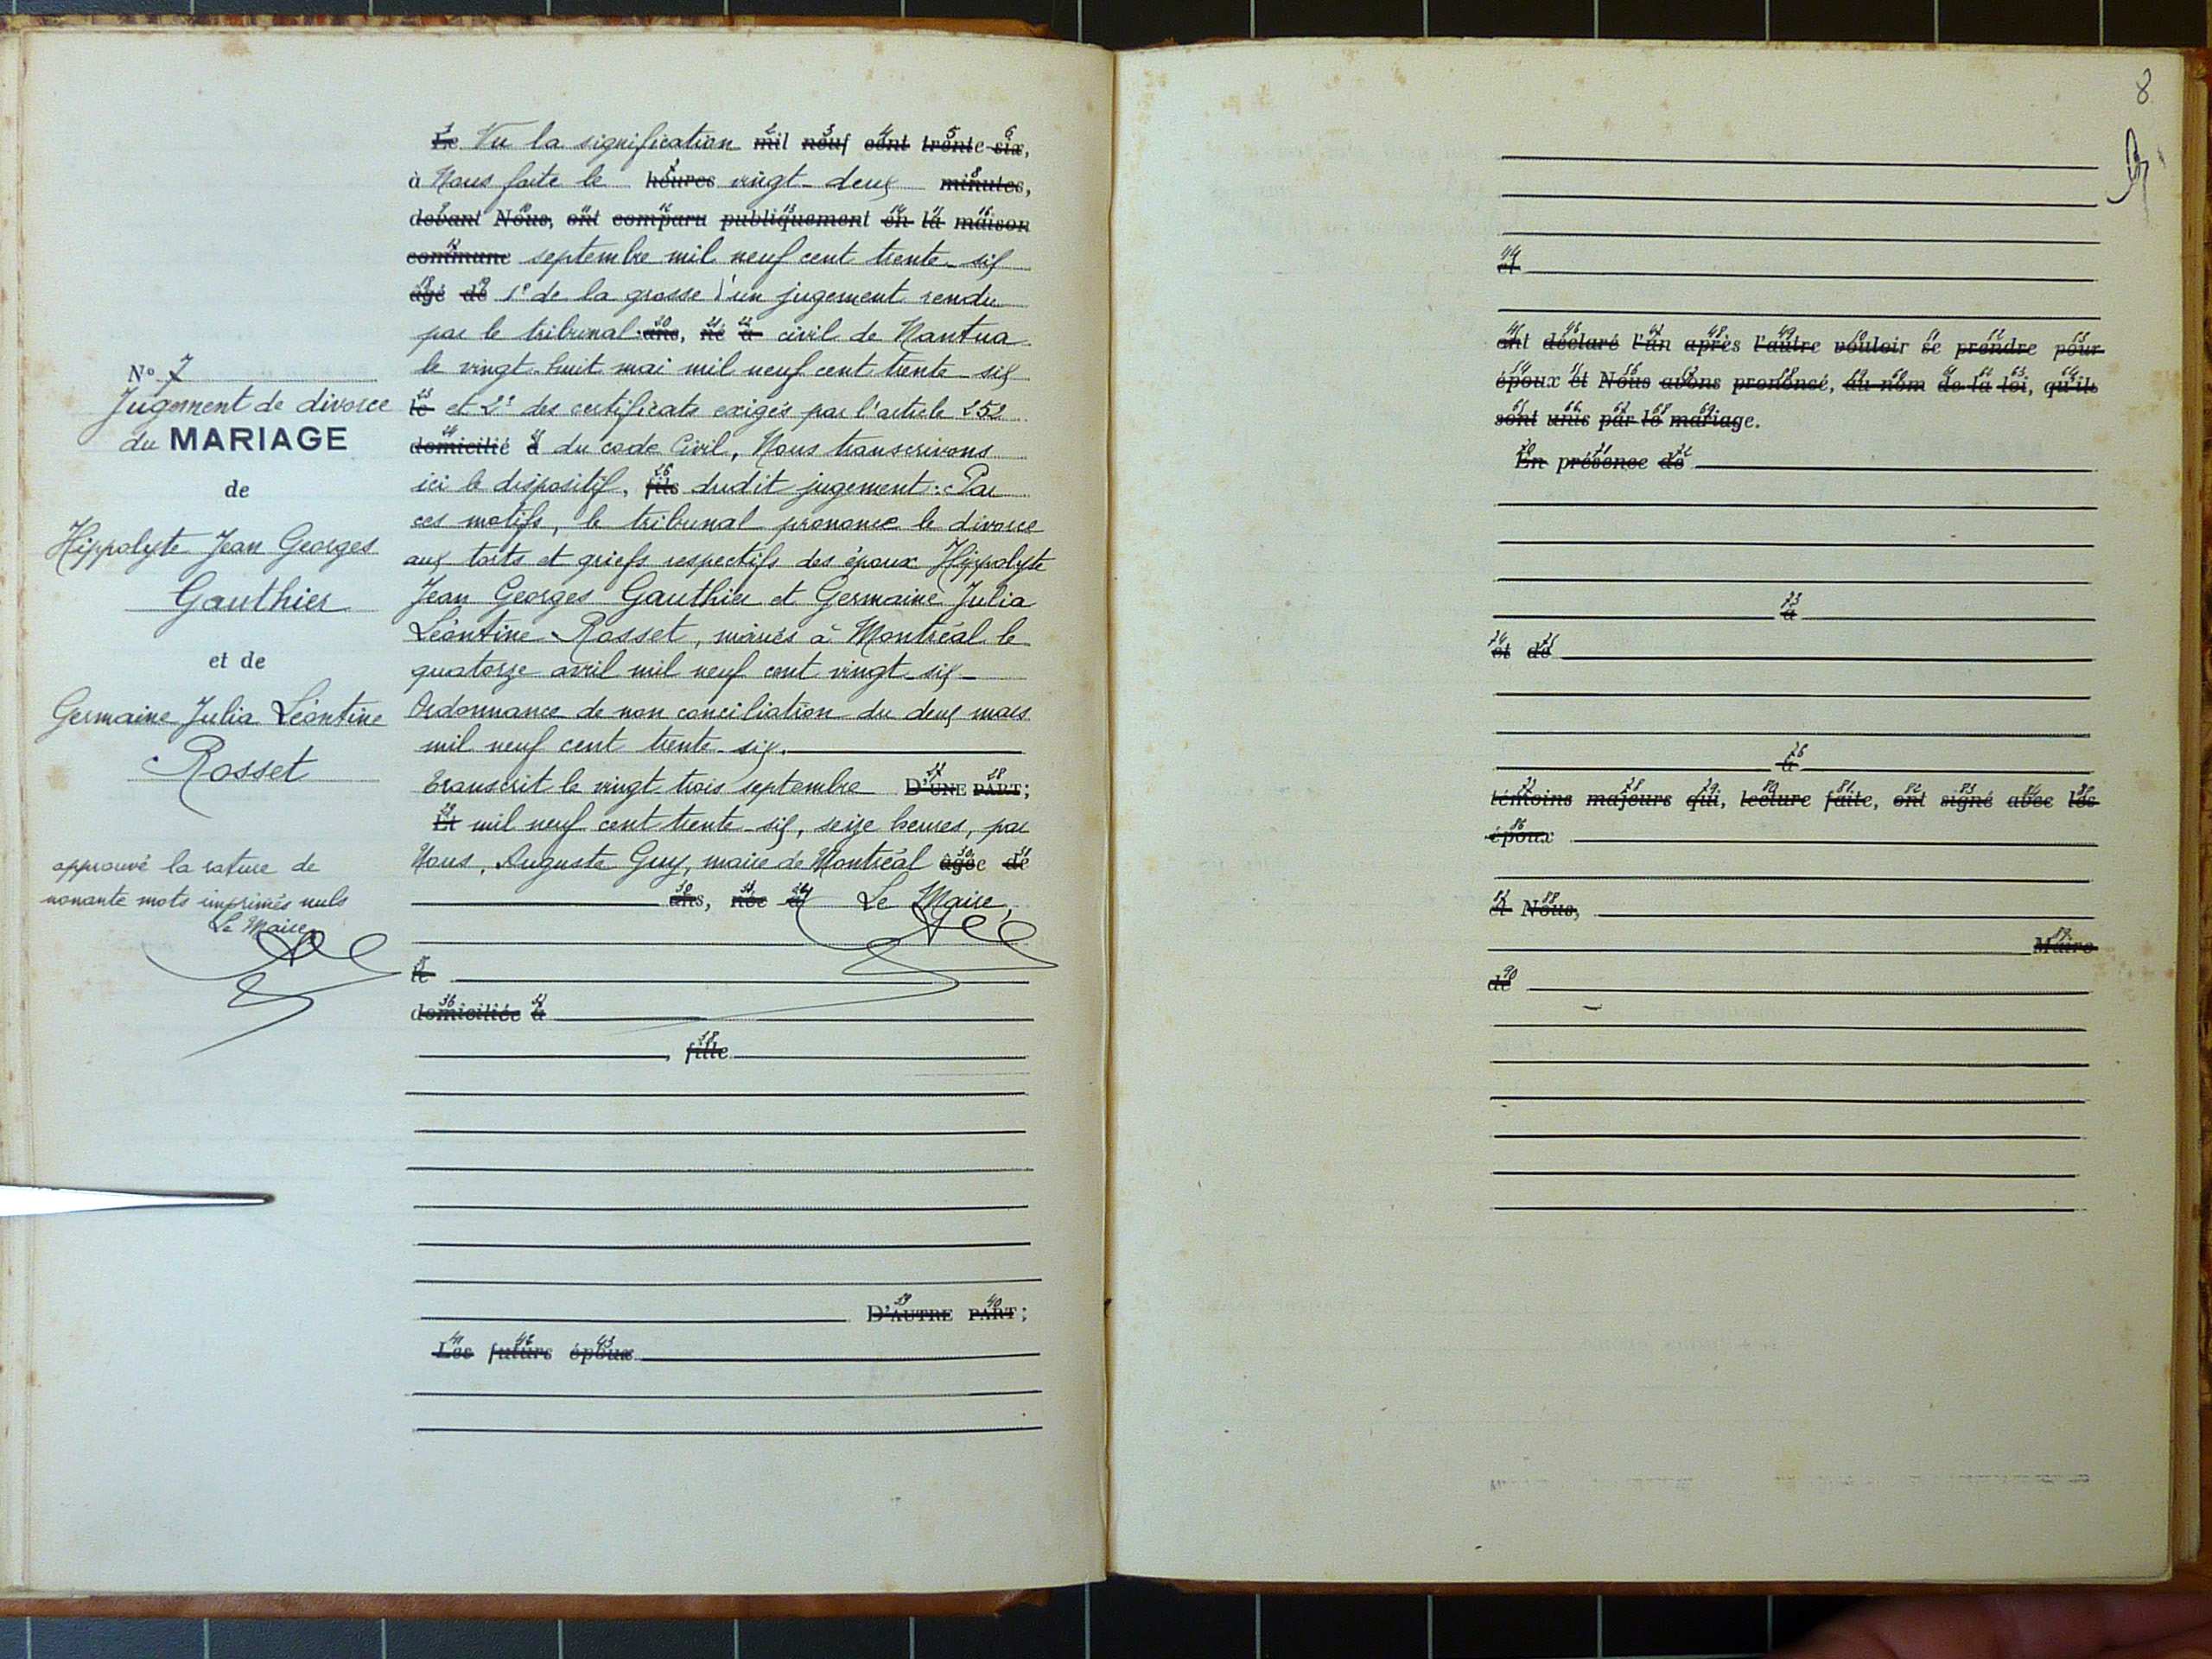 N° 7
Jugement de divorce
du MARIAGE
de
Hippolyte Jean Georges
Gauthier
et de
Germaine Julia Léontine
Rosset
approuvé la rature de
nonante mots imprimés nuls
Le Maire,
Le Vu la signification mil neuf cent trente-six,
à Nous faite le heures vingt-deux minutes,
devant Nous, ont comparu publiquement en la maison
commune septembre mil neuf cent trente-six
âgé de 1° de la grosse d'un jugement rendu
par le tribunal ans, né à civil de Nantua
le vingt-huit mai mil neuf cent trente-six
le et 2° des certificats exigés par l'article 252
domicilié à du code Civil, Nous transcrivons
ici le dispositif, fils dudit jugement. Par
ces motifs, le tribunal prononce le divorce
aux torts et griefs respectifs des époux Hippolyte
Jean Georges Gauthier et Germaine Julia
Léontine Rosset, mariés à Montréal le
quatorze avril mil neuf cent vingt-six
Ordonnance de non conciliation du deux mars
mil neuf cent trente-six.
Transcrit le vingt trois septembre D'UNE PART;
Et mil neuf cent trente-six, seize heures, par
Nous, Auguste Guy, maire de Montréal âgée de
ans, née à Le Maire,
le
domiciliée à
, fille
D'AUTRE PART;
Les futurs époux
8
et
ont déclaré l'un après l'autre vouloir se prendre pour
époux et Nous avons prononcé, au nom de la loi, qu'ils
sont unis par le mariage.
En présence de
à
et de
à
témoins majeurs qui, lecture faite, ont signé avec les
époux
et Nous,
Maire
de